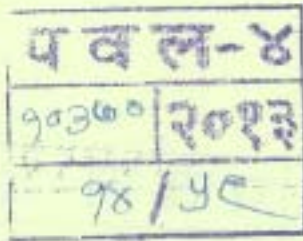 प व ल-४
१०३७० २०१३
१४/५९